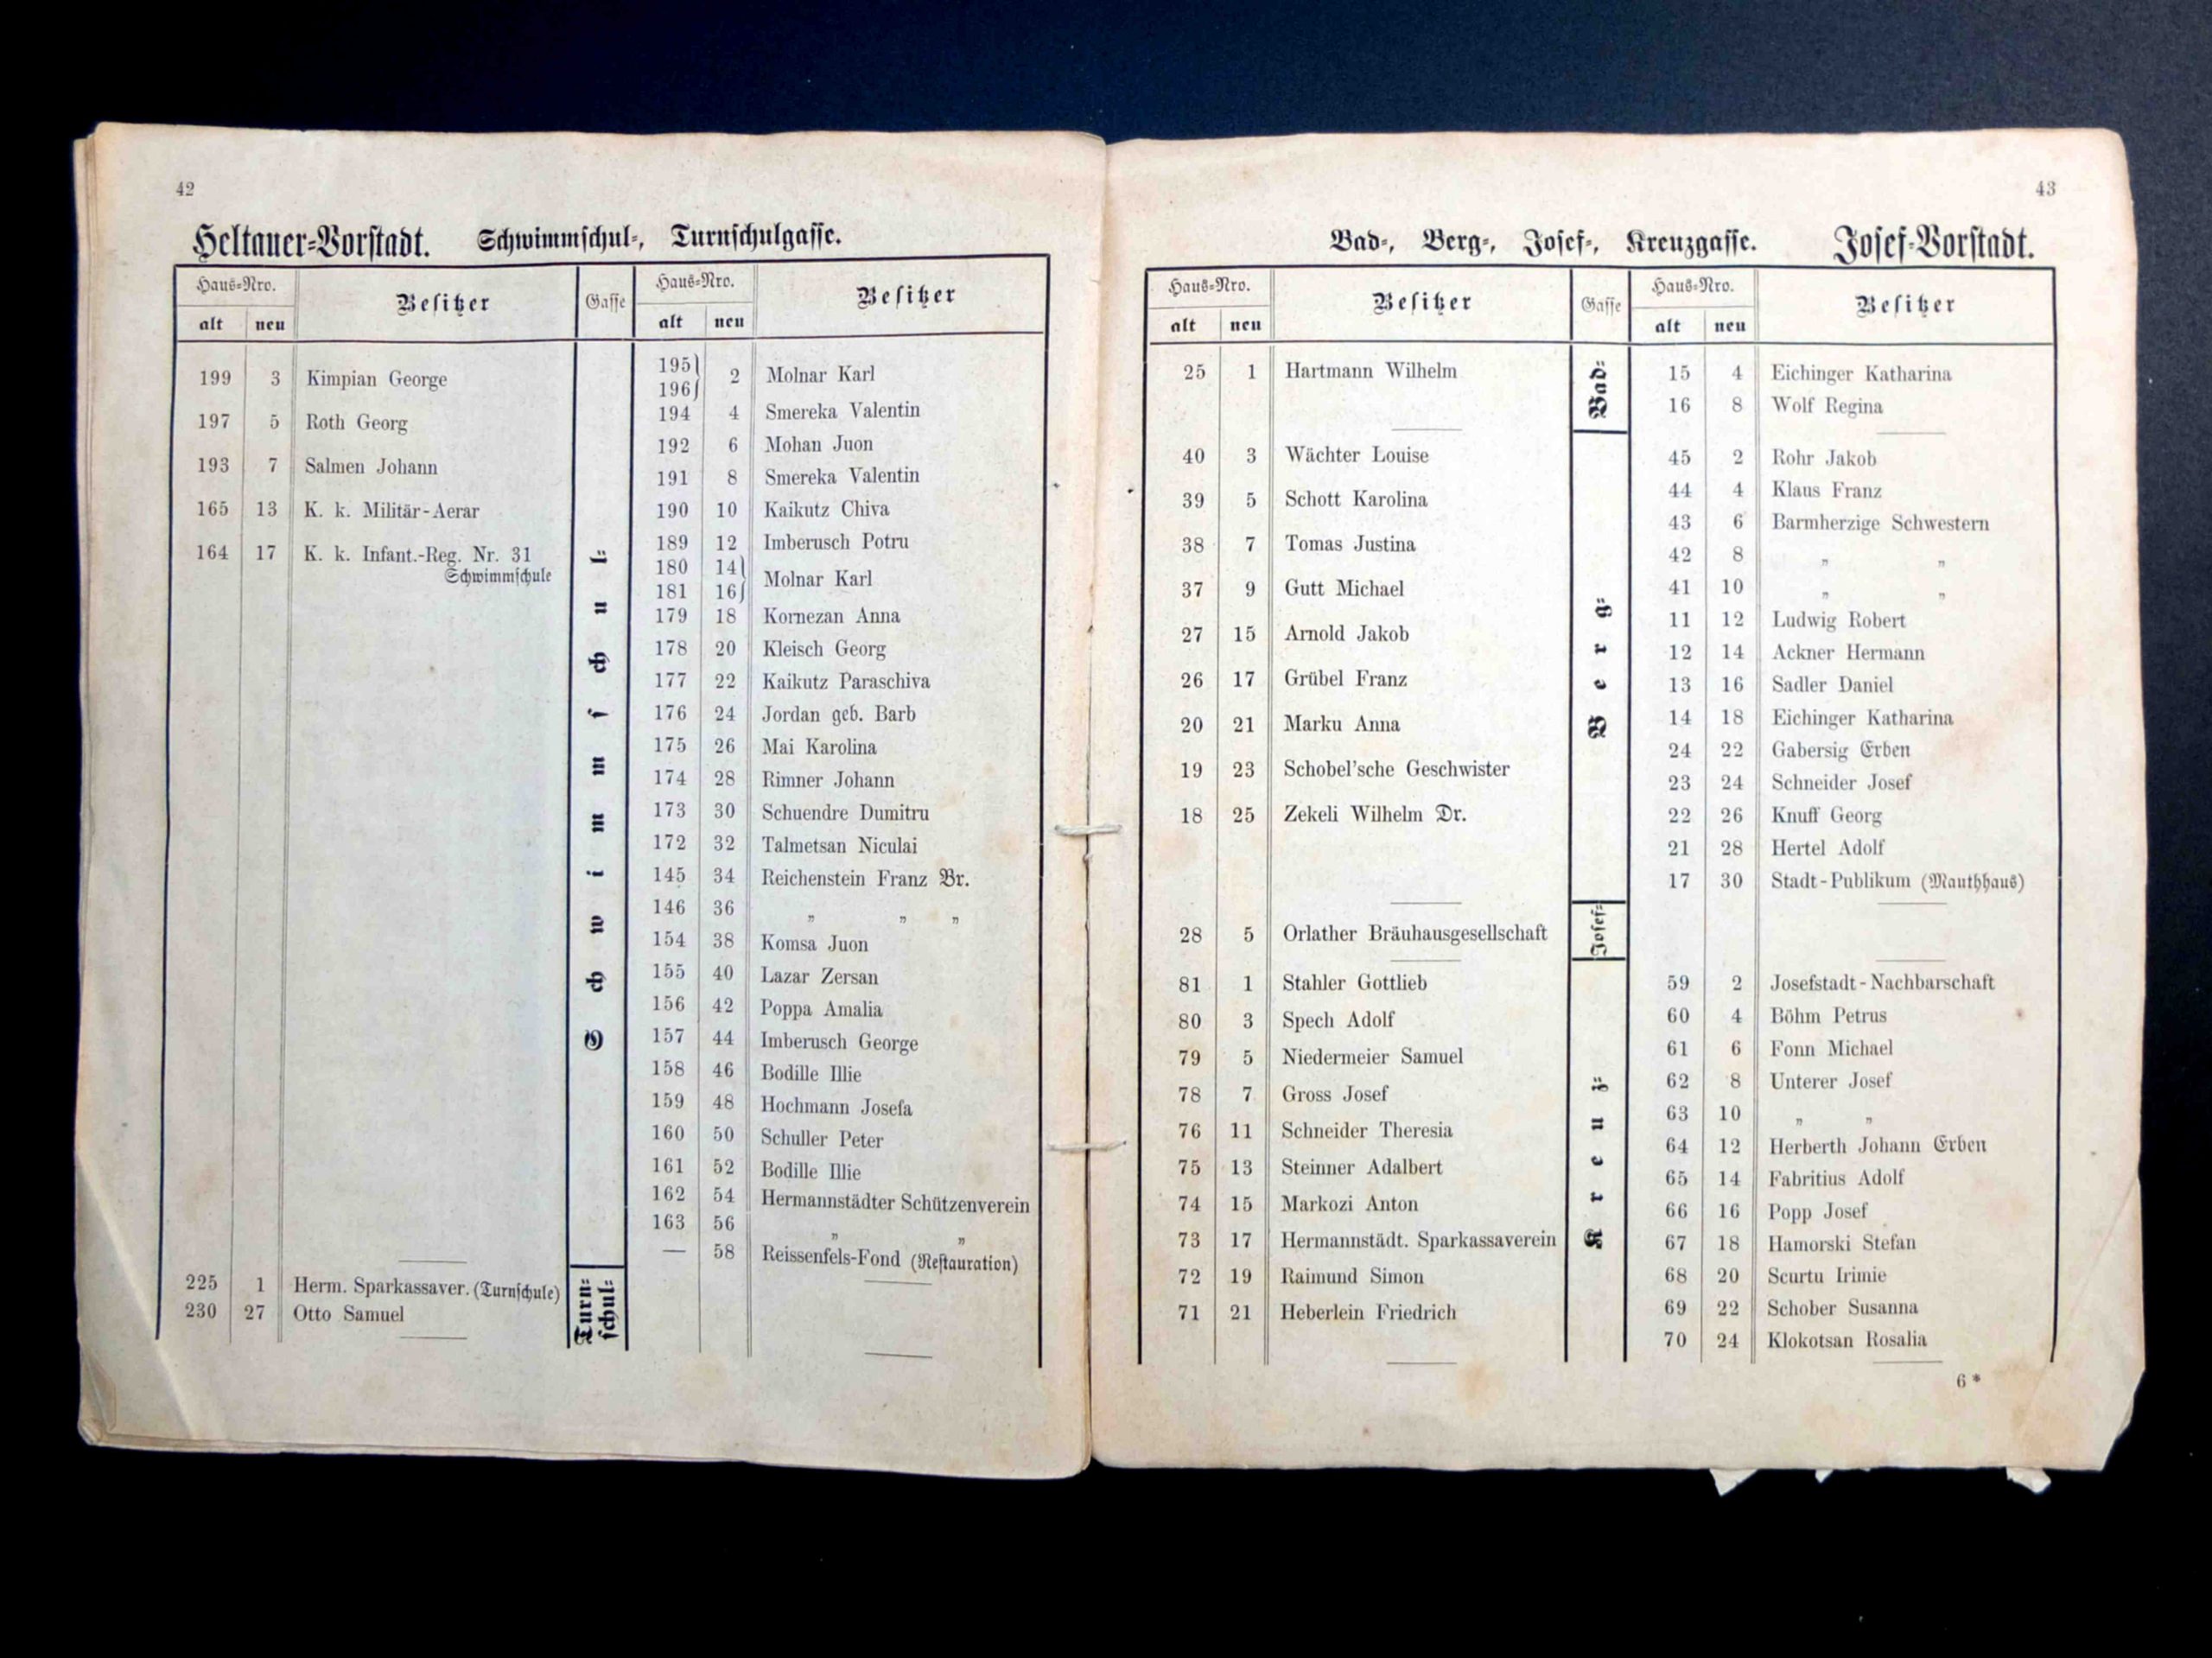 42
Heltauer-Vorstadt. Schwimmschul-, Turnschulgasse.
Haus-Nro. Besitzer Gasse Haus-Nro. Besitzer
alt neu alt neu
199 3 Kimpian George
197 5 Roth Georg
193 7 Salmen Johann
165 13 K. k. Militär-Aerar
164 17 K. k. Infant.-Reg. Nr. 31
Schwimmschule
225 1 Herm. Sparkassaver. (Turnschule)
230 27 Otto Samuel
Schwimmschul-
Turn-
schul-
195
196 2 Molnar Karl
194 4 Smereka Valentin
192 6 Mohan Juon
191 8 Smereka Valentin
190 10 Kaikutz Chiva
189 12 Imberusch Potru
180 14
181 16 Molnar Karl
179 18 Kornezan Anna
178 20 Kleisch Georg
177 22 Kaikutz Paraschiva
176 24 Jordan geb. Barb
175 26 Mai Karolina
174 28 Rimner Johann
173 30 Schuendre Dumitru
172 32 Talmetsan Niculai
145 34 Reichenstein Franz Br.
146 36 „ „ „
154 38 Komsa Juon
155 40 Lazar Zersan
156 42 Poppa Amalia
157 44 Imberusch George
158 46 Bodille Illie
159 48 Hochmann Josefa
160 50 Schuller Peter
161 52 Bodille Illie
162 54 Hermannstädter Schützenverein
163 56 „ „
— 58 Reissenfels-Fond (Restauration)
43
Bad-, Berg-, Josef-, Kreuzgasse. Josef-Vorstadt.
Haus-Nro. Besitzer Gasse Haus-Nro. Besitzer
alt neu alt neu
25 1 Hartmann Wilhelm
40 3 Wächter Louise
39 5 Schott Karolina
38 7 Tomas Justina
37 9 Gutt Michael
27 15 Arnold Jakob
26 17 Grübel Franz
20 21 Marku Anna
19 23 Schobel'sche Geschwister
18 25 Zekeli Wilhelm Dr.
28 5 Orlather Bräuhausgesellschaft
81 1 Stahler Gottlieb
80 3 Spech Adolf
79 5 Niedermeier Samuel
78 7 Gross Josef
76 11 Schneider Theresia
75 13 Steinner Adalbert
74 15 Markozi Anton
73 17 Hermannstädt. Sparkassaverein
72 19 Raimund Simon
71 21 Heberlein Friedrich
Bad-
Berg-
Josef-
Kreuz-
15 4 Eichinger Katharina
16 8 Wolf Regina
45 2 Rohr Jakob
44 4 Klaus Franz
43 6 Barmherzige Schwestern
42 8 „ „
41 10 „ „
11 12 Ludwig Robert
12 14 Ackner Hermann
13 16 Sadler Daniel
14 18 Eichinger Katharina
24 22 Gabersig Erben
23 24 Schneider Josef
22 26 Knuff Georg
21 28 Hertel Adolf
17 30 Stadt-Publikum (Mauthhaus)
59 2 Josefstadt-Nachbarschaft
60 4 Böhm Petrus
61 6 Fonn Michael
62 8 Unterer Josef
63 10 „ „
64 12 Herberth Johann Erben
65 14 Fabritius Adolf
66 16 Popp Josef
67 18 Hamorski Stefan
68 20 Scurtu Irimie
69 22 Schober Susanna
70 24 Klokotsan Rosalia
6*